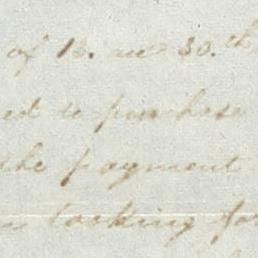 of 18. and 30.th
ed to purchase
the payment
looking for